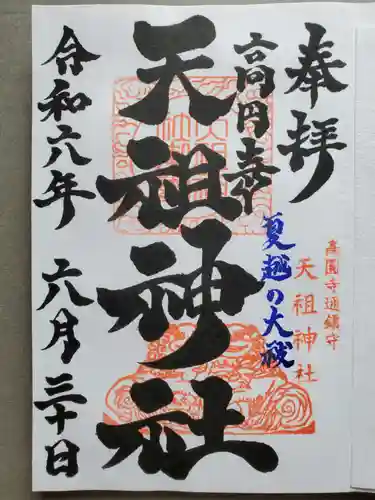 奉拝
高圓寺廼鎮守
天祖神社
夏越の大祓
高円寺
天祖神社
令和六年 六月三十日